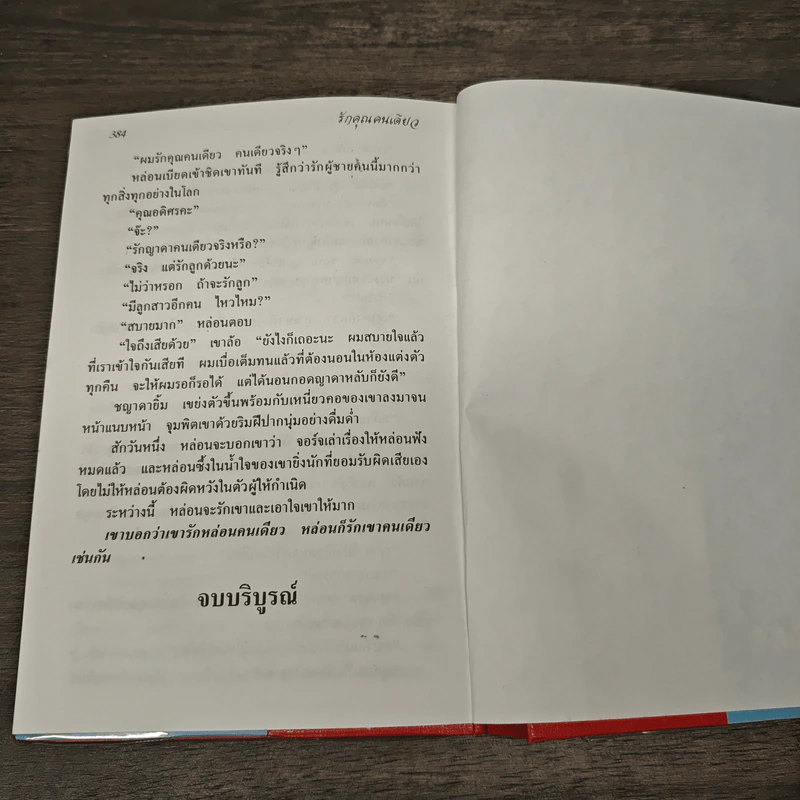 384
รักคุณคนเดียว
“ผมรักคุณคนเดียว คนเดียวจริงๆ”
หล่อนเบียดเข้าชิดเขาทันที รู้สึกว่ารักผู้ชายคนนี้มากกว่า
ทุกสิ่งทุกอย่างในโลก
“คุณอดิศรคะ”
“จ๊ะ?”
“รักญาดาคนเดียวจริงหรือ?”
“จริง แต่รักลูกด้วยนะ”
“ไม่ว่าหรอก ถ้าจะรักลูก”
“มีลูกสาวอีกคน ไหวไหม?”
“สบายมาก” หล่อนตอบ
“ใจถึงเสียด้วย” เขาล้อ “ยังไงก็เถอะนะ ผมสบายใจแล้ว
ที่เราเข้าใจกันเสียที ผมเบื่อเต็มทนแล้วที่ต้องนอนในห้องแต่งตัว
ทุกคืน จะให้ผมรอก็รอได้ แต่ได้นอนกอดญาดาหลับก็ยังดี”
ชญาดายิ้ม เขย่งตัวขึ้นพร้อมกับเหนี่ยวคอของเขาลงมาจน
หน้าแนบหน้า จุมพิตเขาด้วยริมฝีปากนุ่มอย่างดื่มด่ำ
สักวันหนึ่ง หล่อนจะบอกเขาว่า จอร์จเล่าเรื่องให้หล่อนฟัง
หมดแล้ว และหล่อนซึ้งในน้ำใจของเขายิ่งนักที่ยอมรับผิดเสียเอง
โดยไม่ให้หล่อนต้องผิดหวังในตัวผู้ให้กำเนิด
ระหว่างนี้ หล่อนจะรักเขาและเอาใจเขาให้มาก
เขาบอกว่าเขารักหล่อนคนเดียว หล่อนก็รักเขาคนเดียว
เช่นกัน
จบบริบูรณ์